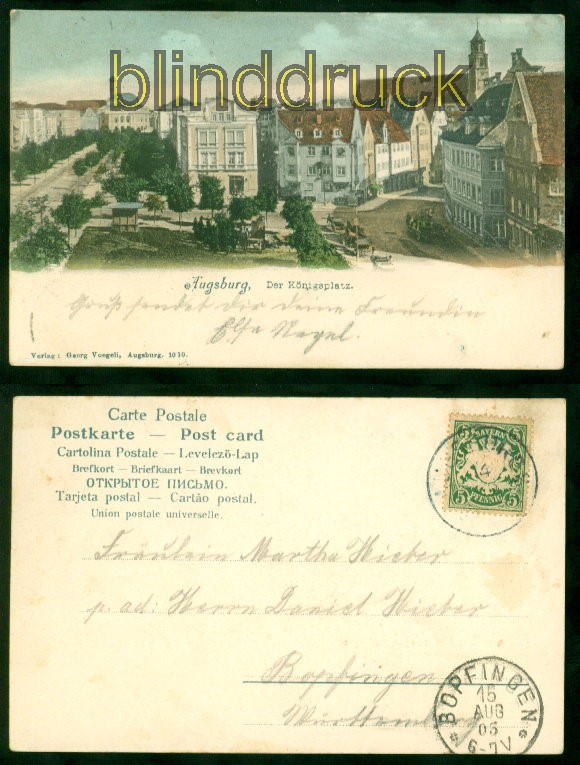 blinddruck
Augsburg, Der Königsplatz.
Gruß sendet dir deine Freundin
Else Nagel.
Verlag: Georg Voegeli, Augsburg. 1010.
Carte Postale
Postkarte — Post card
Cartolina Postale — Levelező-Lap
Brefkort — Briefkaart — Brevkort
ОТКРЫТОЕ ПИСЬМО.
Tarjeta postal — Cartão postal.
Union postale universelle.
BAYERN
14
5 5
PFENNIG
Fräulein Martha Wieber
p. ad: Herrn Daniel Wieber
Bopfingen
Württemberg
BOPFINGEN
15
AUG
05
6-7V